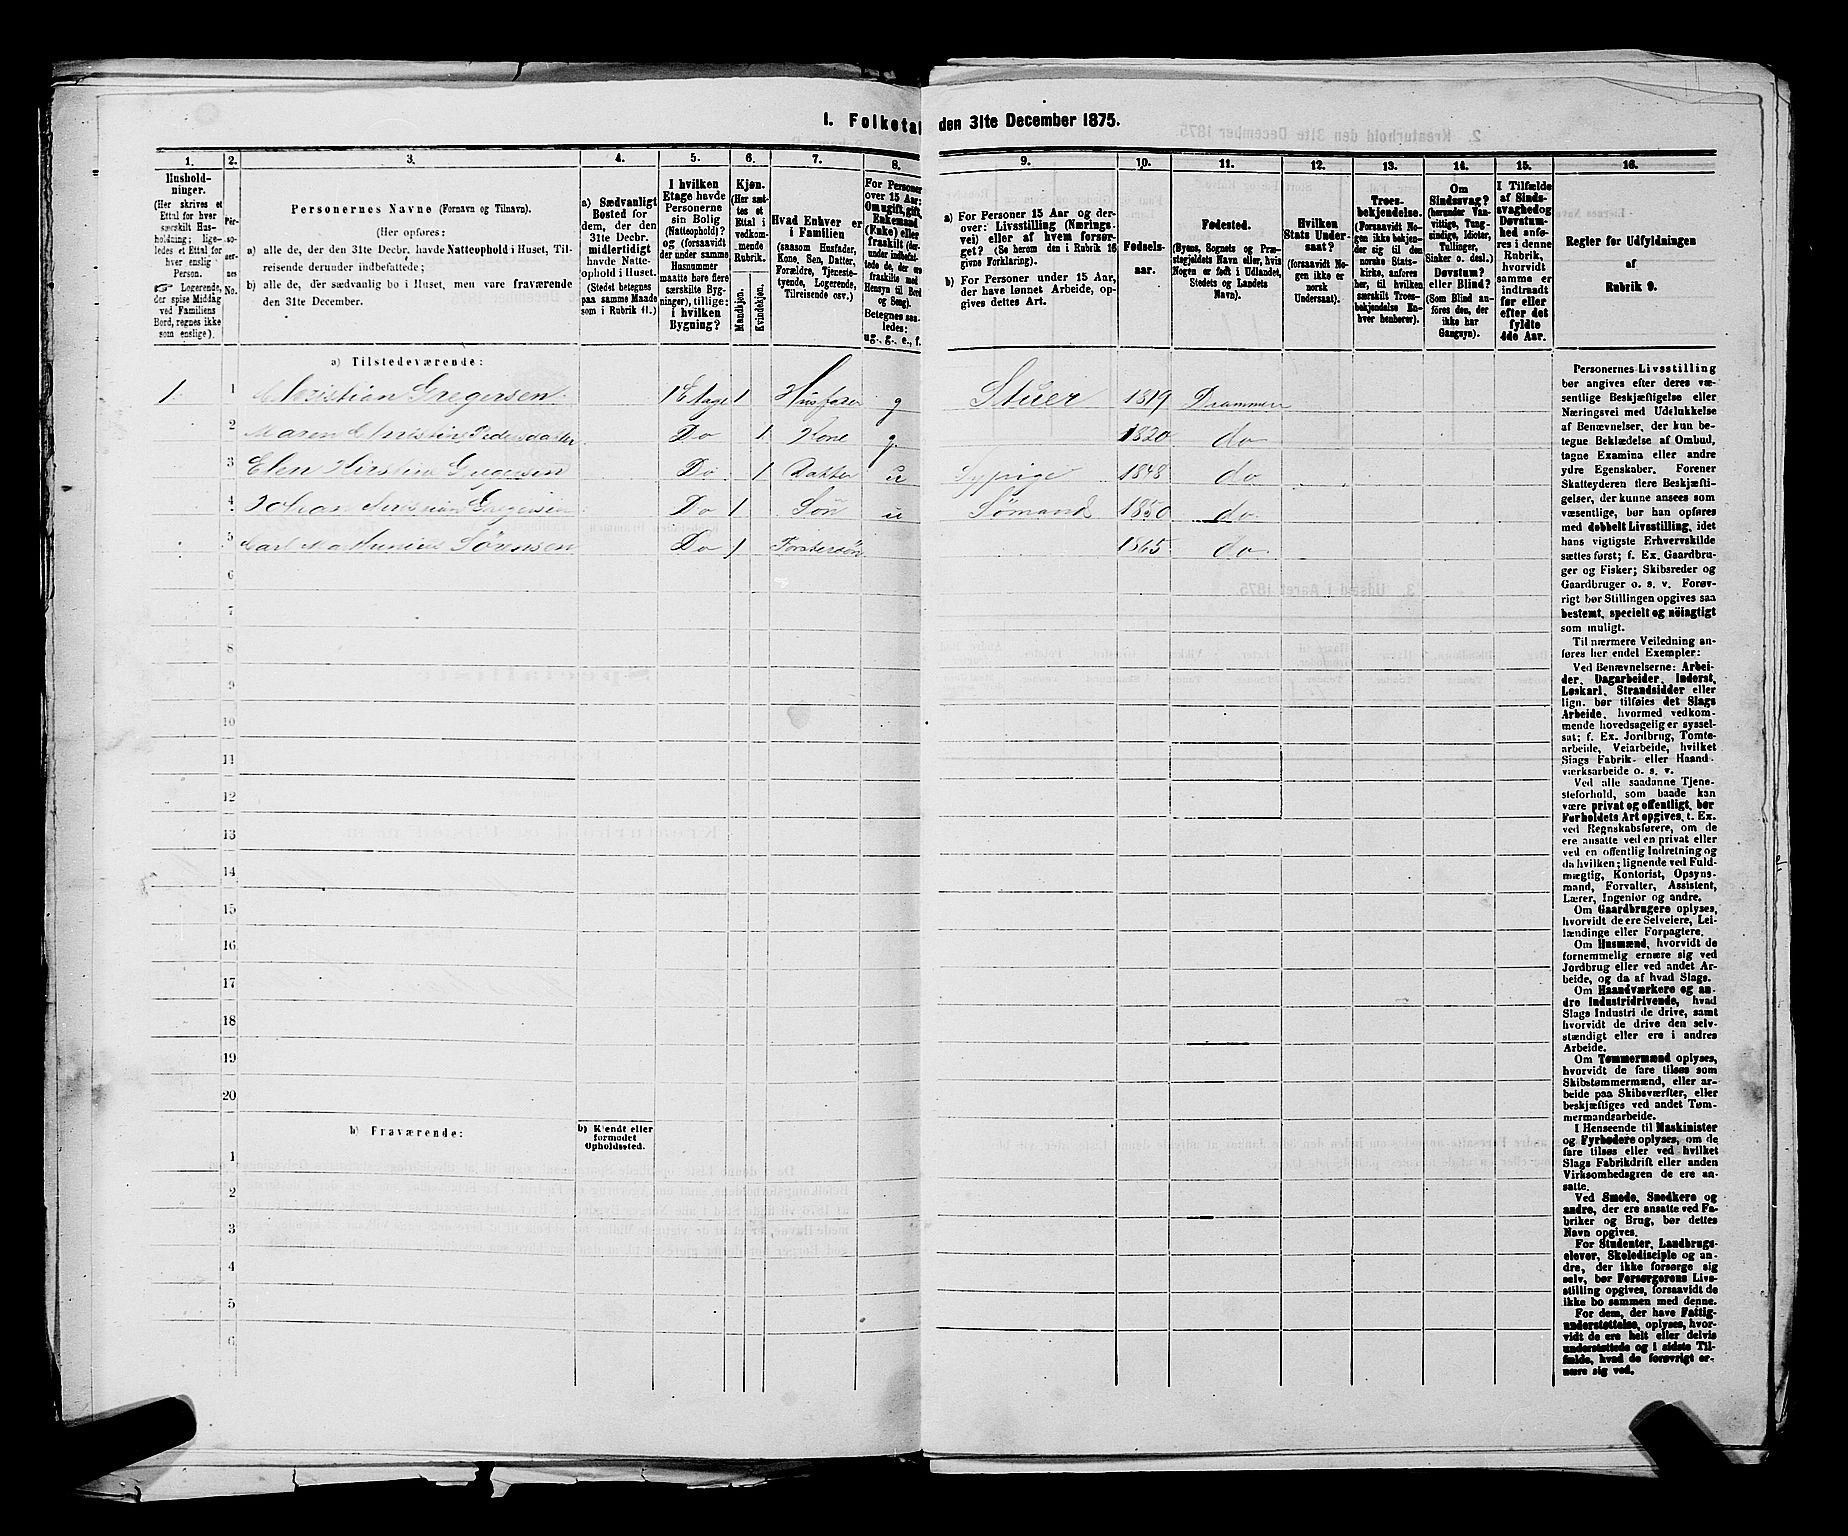 I. Folketal den 31te December 1875.
1. 2. 3. 4. 5. 6. 7. 8. 9. 10. 11. 12. 13. 14. 15. 16.
Hushold-
ninger.
(Her skrives et
Ettal for hver
særskilt Hus-
holdning; lige-
ledes et Ettal for
hver enslig
Person.
☞ Logerende,
der spise Middag
ved Familiens
Bord, regnes ikke
som enslige).
Per-
so-
ner-
nes
No.
Personernes Navne (Fornavn og Tilnavn).
(Her opføres:
a) alle de, der den 31te Decbr. havde Natteophold i Huset, Til-
reisende derunder indbefattede;
b) alle de, der sædvanlig bo i Huset, men vare fraværende
den 31te December.
a) Sædvanligt
Bosted for
dem, der den
31te Decbr.
midlertidigt
havde Natte-
ophold i Huset.
(Stedet betegnes
paa samme Maade
som i Rubrik 11.)
I hvilken
Etage havde
Personerne
sin Bolig
(Natteophold)?
og (forsaavidt
der under samme
Husnummer
maatte høre flere
særskilte Byg-
ninger), tillige:
i hvilken
Bygning?
Kjøn.
(Her sæt-
tes et
Ettal i
vedkom-
mende
Rubrik.
Mandkjøn.
Kvindekjøn.
Hvad Enhver er
i Familien
(saasom Husfader,
Kone, Søn, Datter,
Forældre, Tjeneste-
tyende, Logerende,
Tilreisende osv.)
For Personer
over 15 Aar:
Om ugift, gift,
Enkemand
(Enke) eller
fraskilt (der-
under indbefat-
tede de, der ere
fraskilte med
Hensyn til Bord
og Seng).
Betegnes saa-
ledes:
ug., g., e., f.
a) For Personer 15 Aar og der-
over: Livsstilling (Nærings-
vei) eller af hvem forsør-
get? (Se herom den i Rubrik 16
givne Forklaring).
b) For Personer under 15 Aar,
der have lønnet Arbeide, op-
gives dettes Art.
Fødsels-
aar.
Fødested.
(Byens, Sognets og Præ-
stegjeldets Navn eller, hvis
Nogen er født i Udlandet,
Stedets og Landets
Navn).
Hvilken
Stats Under-
saat?
(forsaavidt No-
gen ikke er
norsk
Undersaat).
Troes-
bekjendelse.
(Forsaavidt No-
gen ikke bekjen-
der sig til den
norske Stats-
kirke, anføres
her, til hvilken
særskilt Troes-
bekjendelse En-
hver henhører).
Om
Sindssvag?
(herunder Van-
vittige, Tung-
sindige, Idioter,
Tullinger,
Sinker o. desl.)
Døvstum?
eller Blind?
(Som Blind an-
føres den, der
ikke har
Gangsyn).
I Tilfælde
af Sinds-
svaghed og
Døvstum-
hed anfø-
res i denne
Rubrik,
hvorvidt
samme er
indtraadt
før eller
efter det
fyldte
4de Aar.
Regler for Udfyldningen
af
Rubrik 9.
a) Tilstedeværende:
1 1 Christian Gregersen 1 Etage 1 Husfader g Stuer 1819 Drammen
2 Maren Christine Pedersdatter Do 1 Kone g 1820 do
3 Elen Kirstine Gregersen Do 1 Datter u Sypige 1848 do
4 Johan Christian Gregersen Do 1 Søn u Sømand 1850 do
5 Carl Sørensen Do 1 Fostersøn 1865 do
6
7
8
9
10
11
12
13
14
15
16
17
18
19
20
b) Fraværende:
b) Kjendt eller
formodet
Opholdssted.
1
2
3
4
5
6
Personernes Livsstilling
bør angives efter deres væ-
sentlige Beskjæftigelse eller
Næringsvei med Udelukkelse
af Benævnelser, der kun be-
tegne Beklædelse af Ombud,
tagne Examina eller andre
ydre Egenskaber. Forener
Skatteyderen flere Beskjæfti-
gelser, der kunne ansees som
væsentlige, bør han opføres
med dobbelt Livsstilling, idet
hans vigtigste Erhvervskilde
sættes først; f. Ex. Gaardbru-
ger og Fisker; Skibsreder og
Gaardbruger o. s. v. Forøv-
rigt bør Stillingen opgives saa
bestemt, specielt og nöiagtigt
som muligt.
Til nærmere Veiledning an-
føres her endel Exempler:
Ved Benævnelserne: Arbei-
der, Dagarbeider, Inderst,
Løskarl, Strandsidder eller
lign. bør tilføies det Slags
Arbeide, hvormed vedkom-
mende hovedsagelig er syssel-
sat; f. Ex. Jordbrug, Tomte-
arbeide, Veiarbeide, hvilket
Slags Fabrik- eller Haand-
værksarbeide o. s. v.
Ved alle saadanne Tjene-
steforhold, som baade kan
være privat og offentligt, bør
Forholdets Art opgives, t. Ex.
ved Regnskabsførere, om de
ere ansatte ved en privat eller
ved en offentlig Indretning og
da hvilken; lignende ved Fuld-
mægtig, Kontorist, Opsyns-
mand, Forvalter, Assistent,
Lærer, Ingeniør og andre.
Om Gaardbrugere oplyses,
hvorvidt de ere Selveiere, Lei-
lændinge eller Forpagtere.
Om Husmænd, hvorvidt de
fornemmelig ernære sig ved
Jordbrug eller ved andet Ar-
beide, og da af hvad Slags.
Om Haandværkere og an-
dre Industridrivende, hvad
Slags Industri de drive, samt
hvorvidt de drive den selv-
stændigt eller ere i andres
Arbeide.
Om Tømmermænd oplyses,
hvorvidt de fare tilsøs som
Skibstømmermænd, eller ar-
beide paa Skibsværfter, eller
beskjæftiges ved andet Tøm-
mermandsarbeide.
I Henseende til Maskinister
og Fyrbødere oplyses, om de
fare tilsøs eller ved hvilket
Slags Fabrikdrift eller anden
Virksomhedsgren de ere an-
satte.
Ved Smede, Snedkere og
andre, der ere ansatte ved Fa-
briker og Brug, bør dettes
Navn opgives.
For Studenter, Landbrugs-
elever, Skoledisciple og an-
dre, der ikke forsørge sig
selv, bør Forsørgerens Livs-
stilling opgives, forsaavidt de
ikke bo sammen med denne.
For dem, der have Fattig-
understøttelse, oplyses, hvor-
vidt de ere helt eller delvis
understøttede og i sidste Til-
fælde, hvad de forøvrigt er-
nære sig ved.